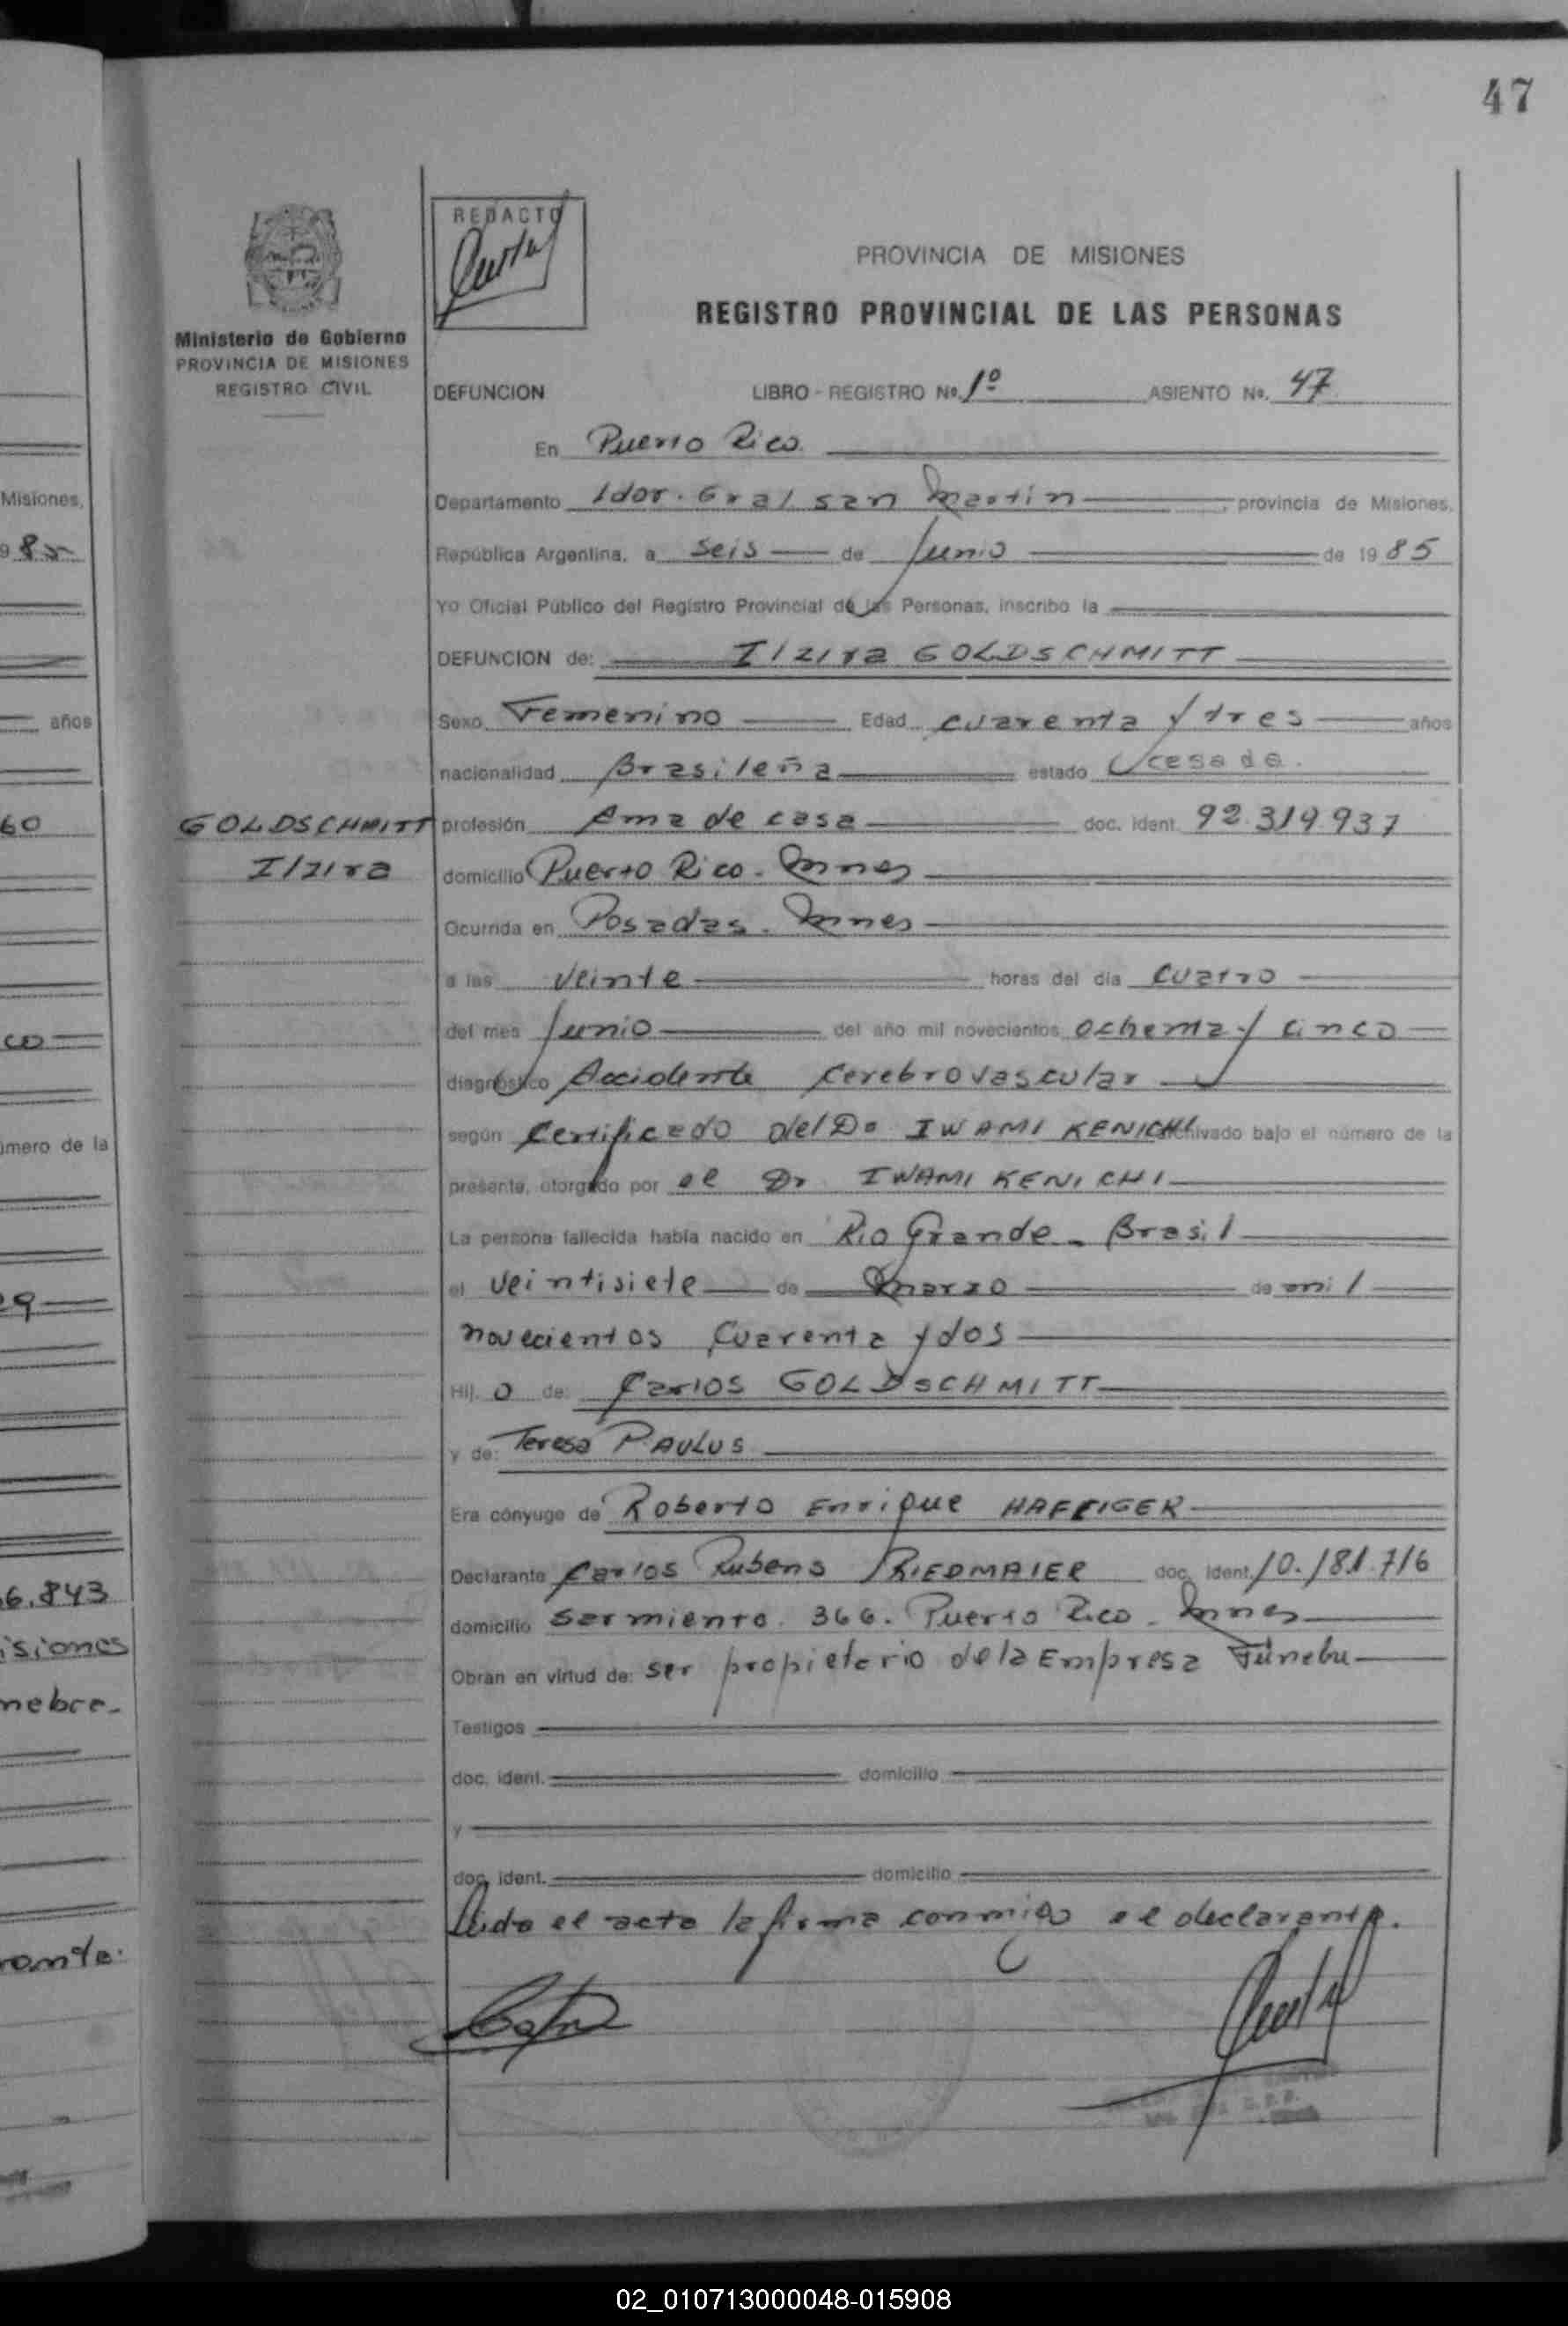 47
REDACTO
PROVINCIA DE MISIONES
REGISTRO PROVINCIAL DE LAS PERSONAS
Ministerio de Gobierno
PROVINCIA DE MISIONES
REGISTRO CIVIL
DEFUNCION LIBRO - REGISTRO No. 1º ASIENTO No. 47
En Puerto Rico
Departamento Ldor. Gral San Martin provincia de Misiones,
República Argentina, a seis de Junio de 1985
Yo Oficial Público del Registro Provincial de las Personas, inscribo la
DEFUNCION de: Ilzira GOLDSCHMITT
Sexo Femenino Edad cuarenta y tres años
nacionalidad Brasileña estado casada.
GOLDSCHMITT
Ilzira
profesión Ama de casa doc. ident. 92.319.937
domicilio Puerto Rico - Mnes
Ocurrida en Posadas - Mnes
a las veinte horas del día cuatro
del mes Junio del año mil novecientos ochenta y cinco
diagnóstico Accidente Cerebrovascular
según Certificado del Dr IWAMI KENICHI archivado bajo el número de la
presente, otorgado por el Dr IWAMI KENICHI
La persona fallecida había nacido en Rio Grande - Brasil
el veintisiete de marzo de mil
novecientos cuarenta y dos
Hij. o de: Carlos GOLDSCHMITT
y de: Teresa PAULUS
Era cónyuge de Roberto Enrique HAFLIGER
Declarante Carlos Rubens RIEDMAIER doc. ident. 10.181.716
domicilio Sarmiento 366. Puerto Rico - Mnes
Obran en virtud de: ser propietario de la Empresa Fúnebre
Testigos
doc. ident. domicilio
y
doc. ident. domicilio
Leida el acta la firma conmigo el declarante.
Misiones,
985
años
60
co
número de la
29
6.843
isiones
nebre-
rante.
02_010713000048-015908